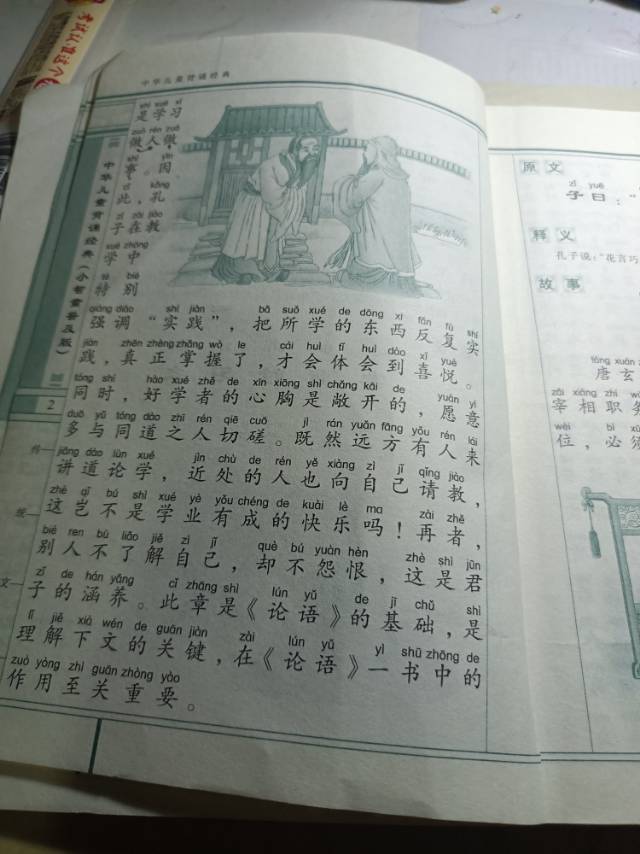 中华儿童背诵经典
shì xué xí
是学习
zuò rén zuò
做人做
shì yīn
事。因
cǐ kǒng
此,孔
zǐ zài jiào
子在教
xué zhōng
学中
tè bié
特别
qiáng diào shí jiàn bǎ suǒ xué de dōng xi fǎn fù shí
强调“实践”,把所学的东西反复实
jiàn zhēn zhèng zhǎng wò le cái huì tǐ huì dào xǐ yuè
践,真正掌握了,才会体会到喜悦。
tóng shí hào xué zhě de xīn xiōng shì chǎng kāi de yuàn yì
同时,好学者的心胸是敞开的,愿意
duō yǔ tóng dào zhī rén qiē cuō jì rán yuǎn fāng yǒu rén lái
多与同道之人切磋。既然远方有人来
jiǎng dào lùn xué jìn chù de rén yě xiàng zì jǐ qǐng jiào
讲道论学,近处的人也向自己请教,
zhè qǐ bú shì xué yè yǒu chéng de kuài lè ma zài zhě
这岂不是学业有成的快乐吗!再者,
bié ren bù liǎo jiě zì jǐ què bú yuàn hèn zhè shì jūn
别人不了解自己,却不怨恨,这是君
zǐ de hán yǎng cǐ zhāng shì lún yǔ de jī chǔ shì
子的涵养。此章是《论语》的基础,是
lǐ jiě xià wén de guān jiàn zài lún yǔ yì shū zhōng de
理解下文的关键,在《论语》一书中的
zuò yòng zhì guān zhòng yào
作用至关重要。
中华儿童背诵经典
2
传
统
文
原文
zǐ yuē
子曰:“
释义
孔子说:“花言巧
故事
táng xuán
唐玄
zǎi xiàng zhí
宰相职务
wèi bì xū
位,必须